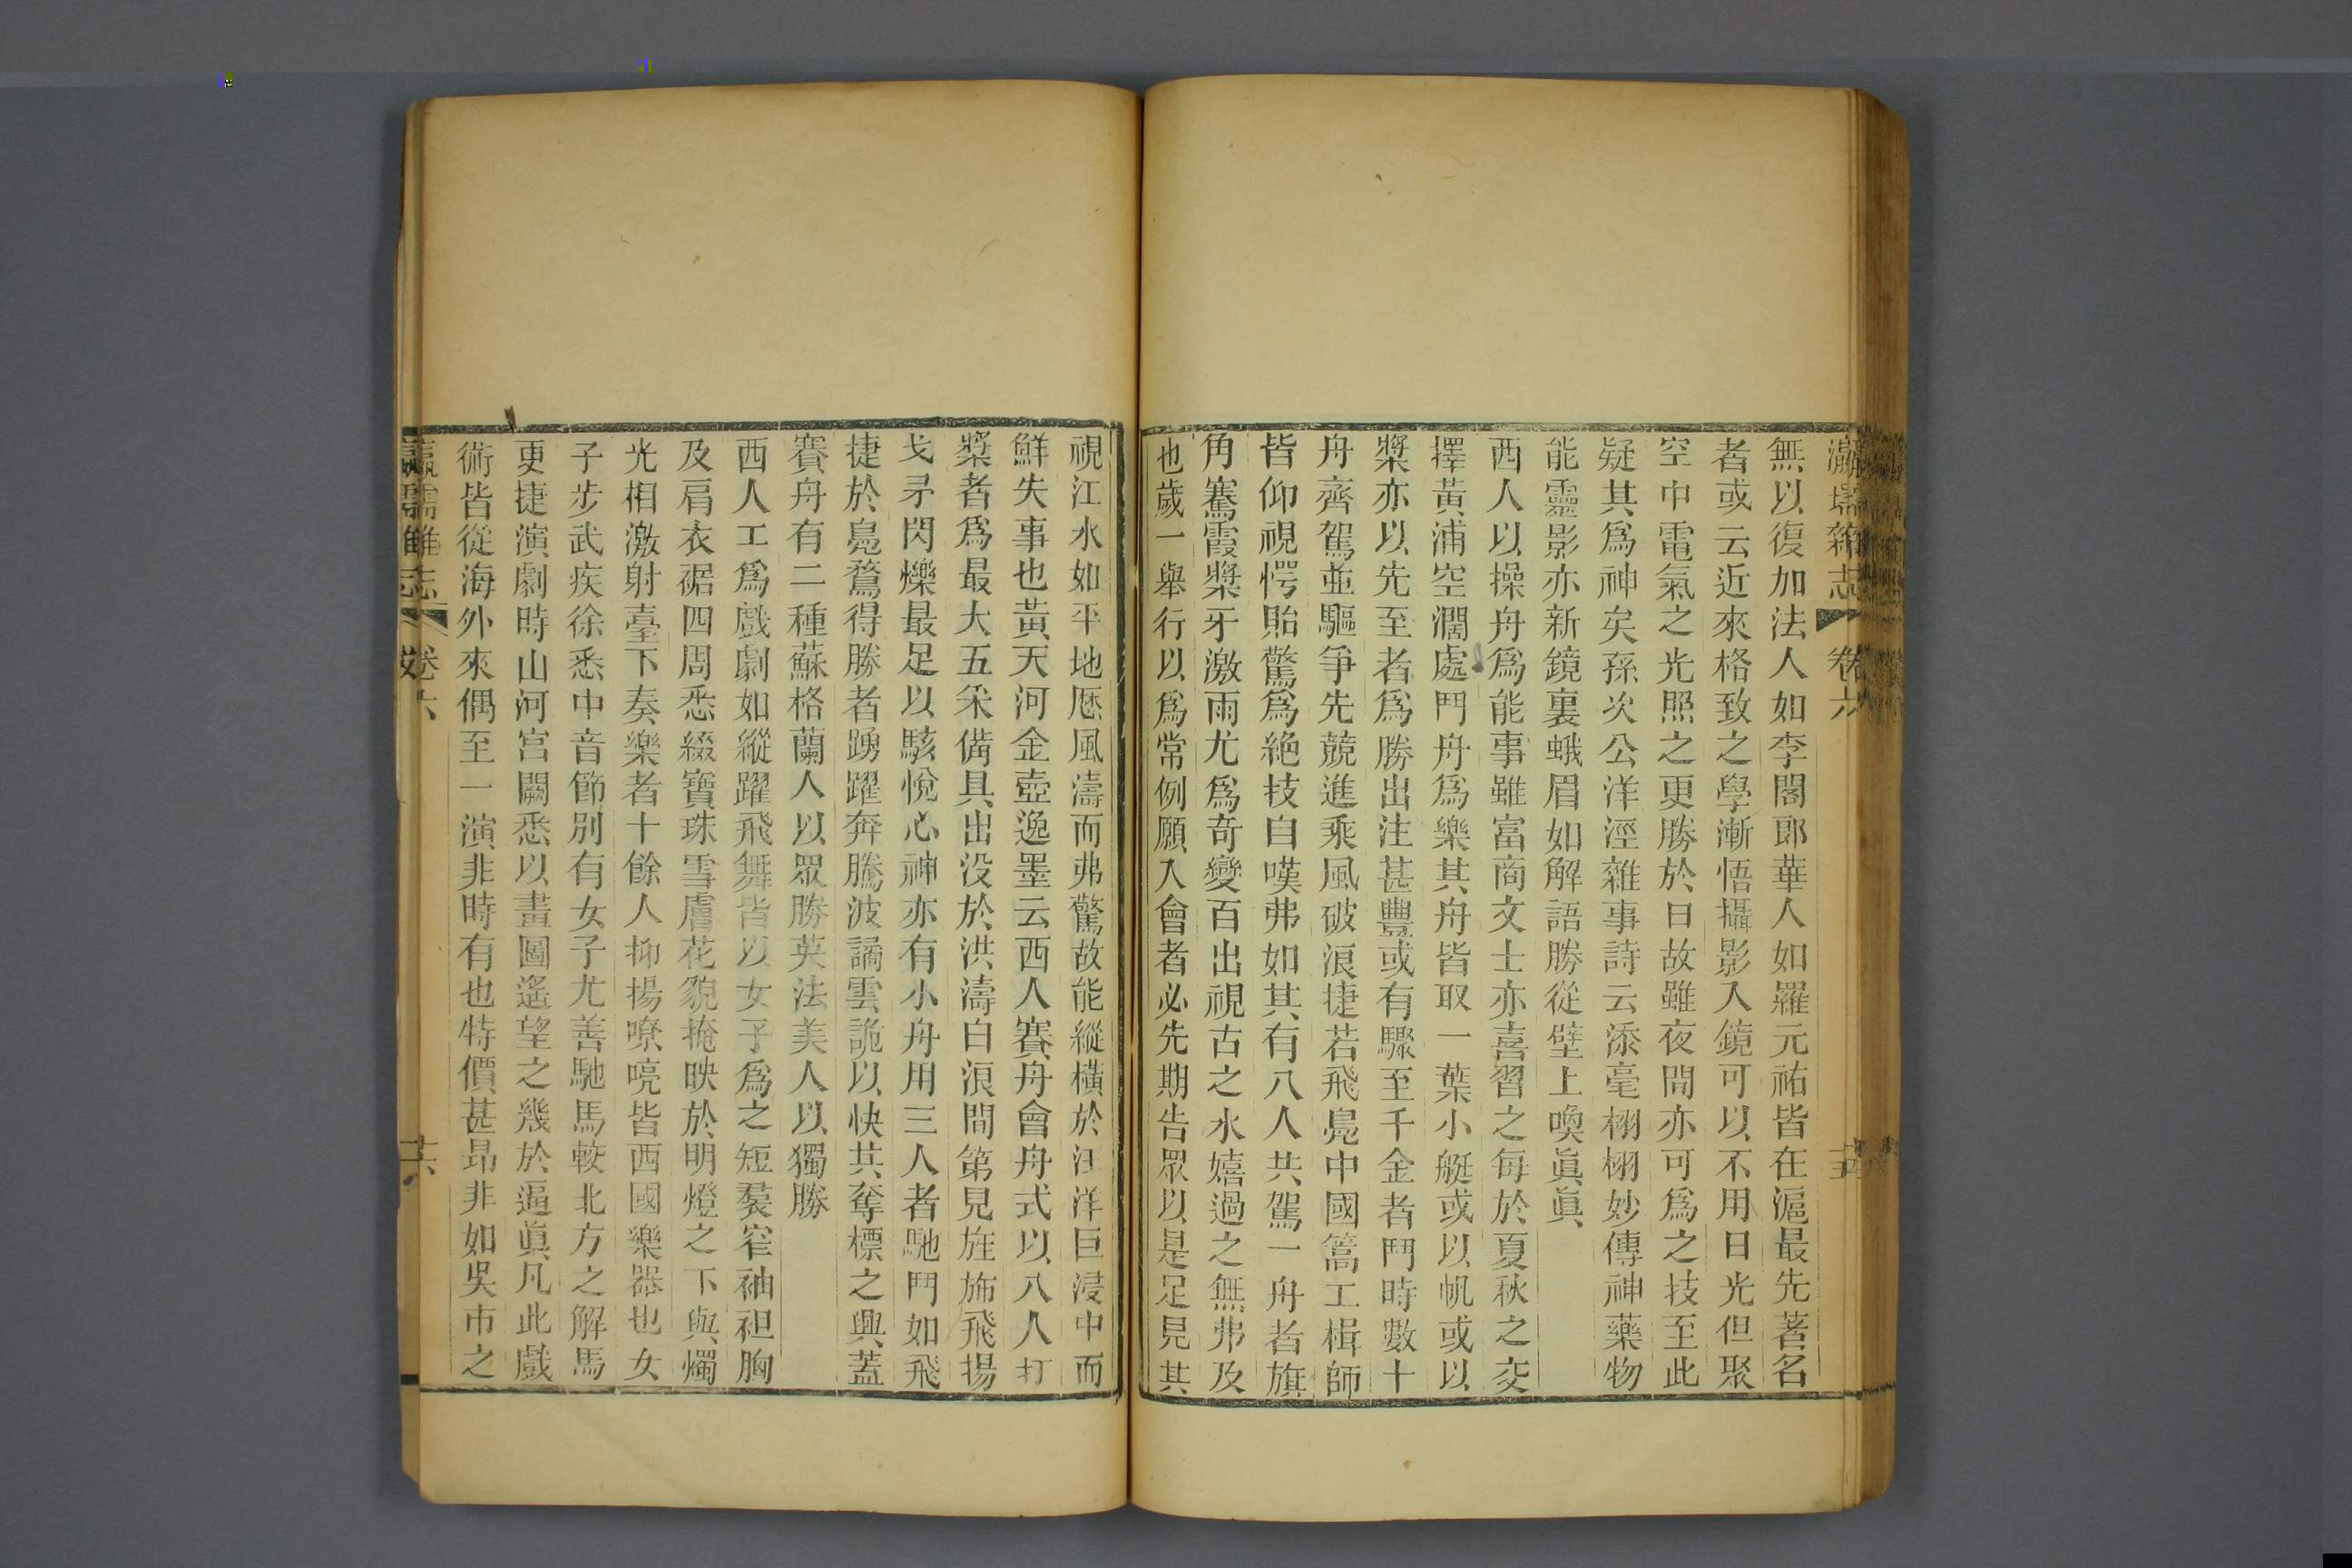 瀛壖雜志 卷六
無以復加法人如李閣郎華人如羅元祐皆在滬最先著名
者或云近來格致之學漸悟攝影入鏡可以不用日光但聚
空中電氣之光照之更勝於日故雖夜閒亦可爲之技至此
疑其爲神矣孫次公洋涇雜事詩云添毫栩栩妙傳神藥物
能靈影亦新鏡裏蛾眉如解語勝從壁上喚眞眞
西人以操舟爲能事雖富商文士亦喜習之每於夏秋之交
擇黃浦空濶處鬥舟爲樂其舟皆取一葉小艇或以帆或以
槳亦以先至者爲勝出注甚豐或有驟至千金者鬥時數十
舟齊駕並驅爭先競進乘風破浪捷若飛鳧中國篙工楫師
皆仰視愕貽驚爲絶技自嘆弗如其有八人共駕一舟者旗
角騫霞槳牙激雨尤爲奇變百出視古之水嬉過之無弗及
也歲一舉行以爲常例願入會者必先期告眾以是足見其
視江水如平地厯風濤而弗驚故能縱橫於汪洋巨浸中而
鮮失事也黃天河金壺逸墨云西人賽舟會舟式以八人打
槳者爲最大五采備具出没於洪濤白浪間第見旌旆飛揚
戈矛閃爍最足以駭悅心神亦有小舟用三人者馳鬥如飛
捷於鳧鶩得勝者踴躍奔騰波譎雲詭以快其奪標之興蓋
賽舟有二種蘇格蘭人以眾勝英法美人以獨勝
西人工爲戲劇如縱躍飛舞皆以女子爲之短裂窄袖袒胸
及肩衣裾四周悉綴寶珠雪膚花貌掩映於明燈之下與燭
光相激射臺下奏樂者十餘人抑揚嘹喨皆西國樂器也女
子步武疾徐悉中音節別有女子尤善馳馬較北方之解馬
更捷演劇時山河宮闕悉以畫圖遙望之幾於逼眞凡此戲
術皆從海外來偶至一演非時有也特價甚昂非如吳市之
瀛壖雜志 卷六 十六